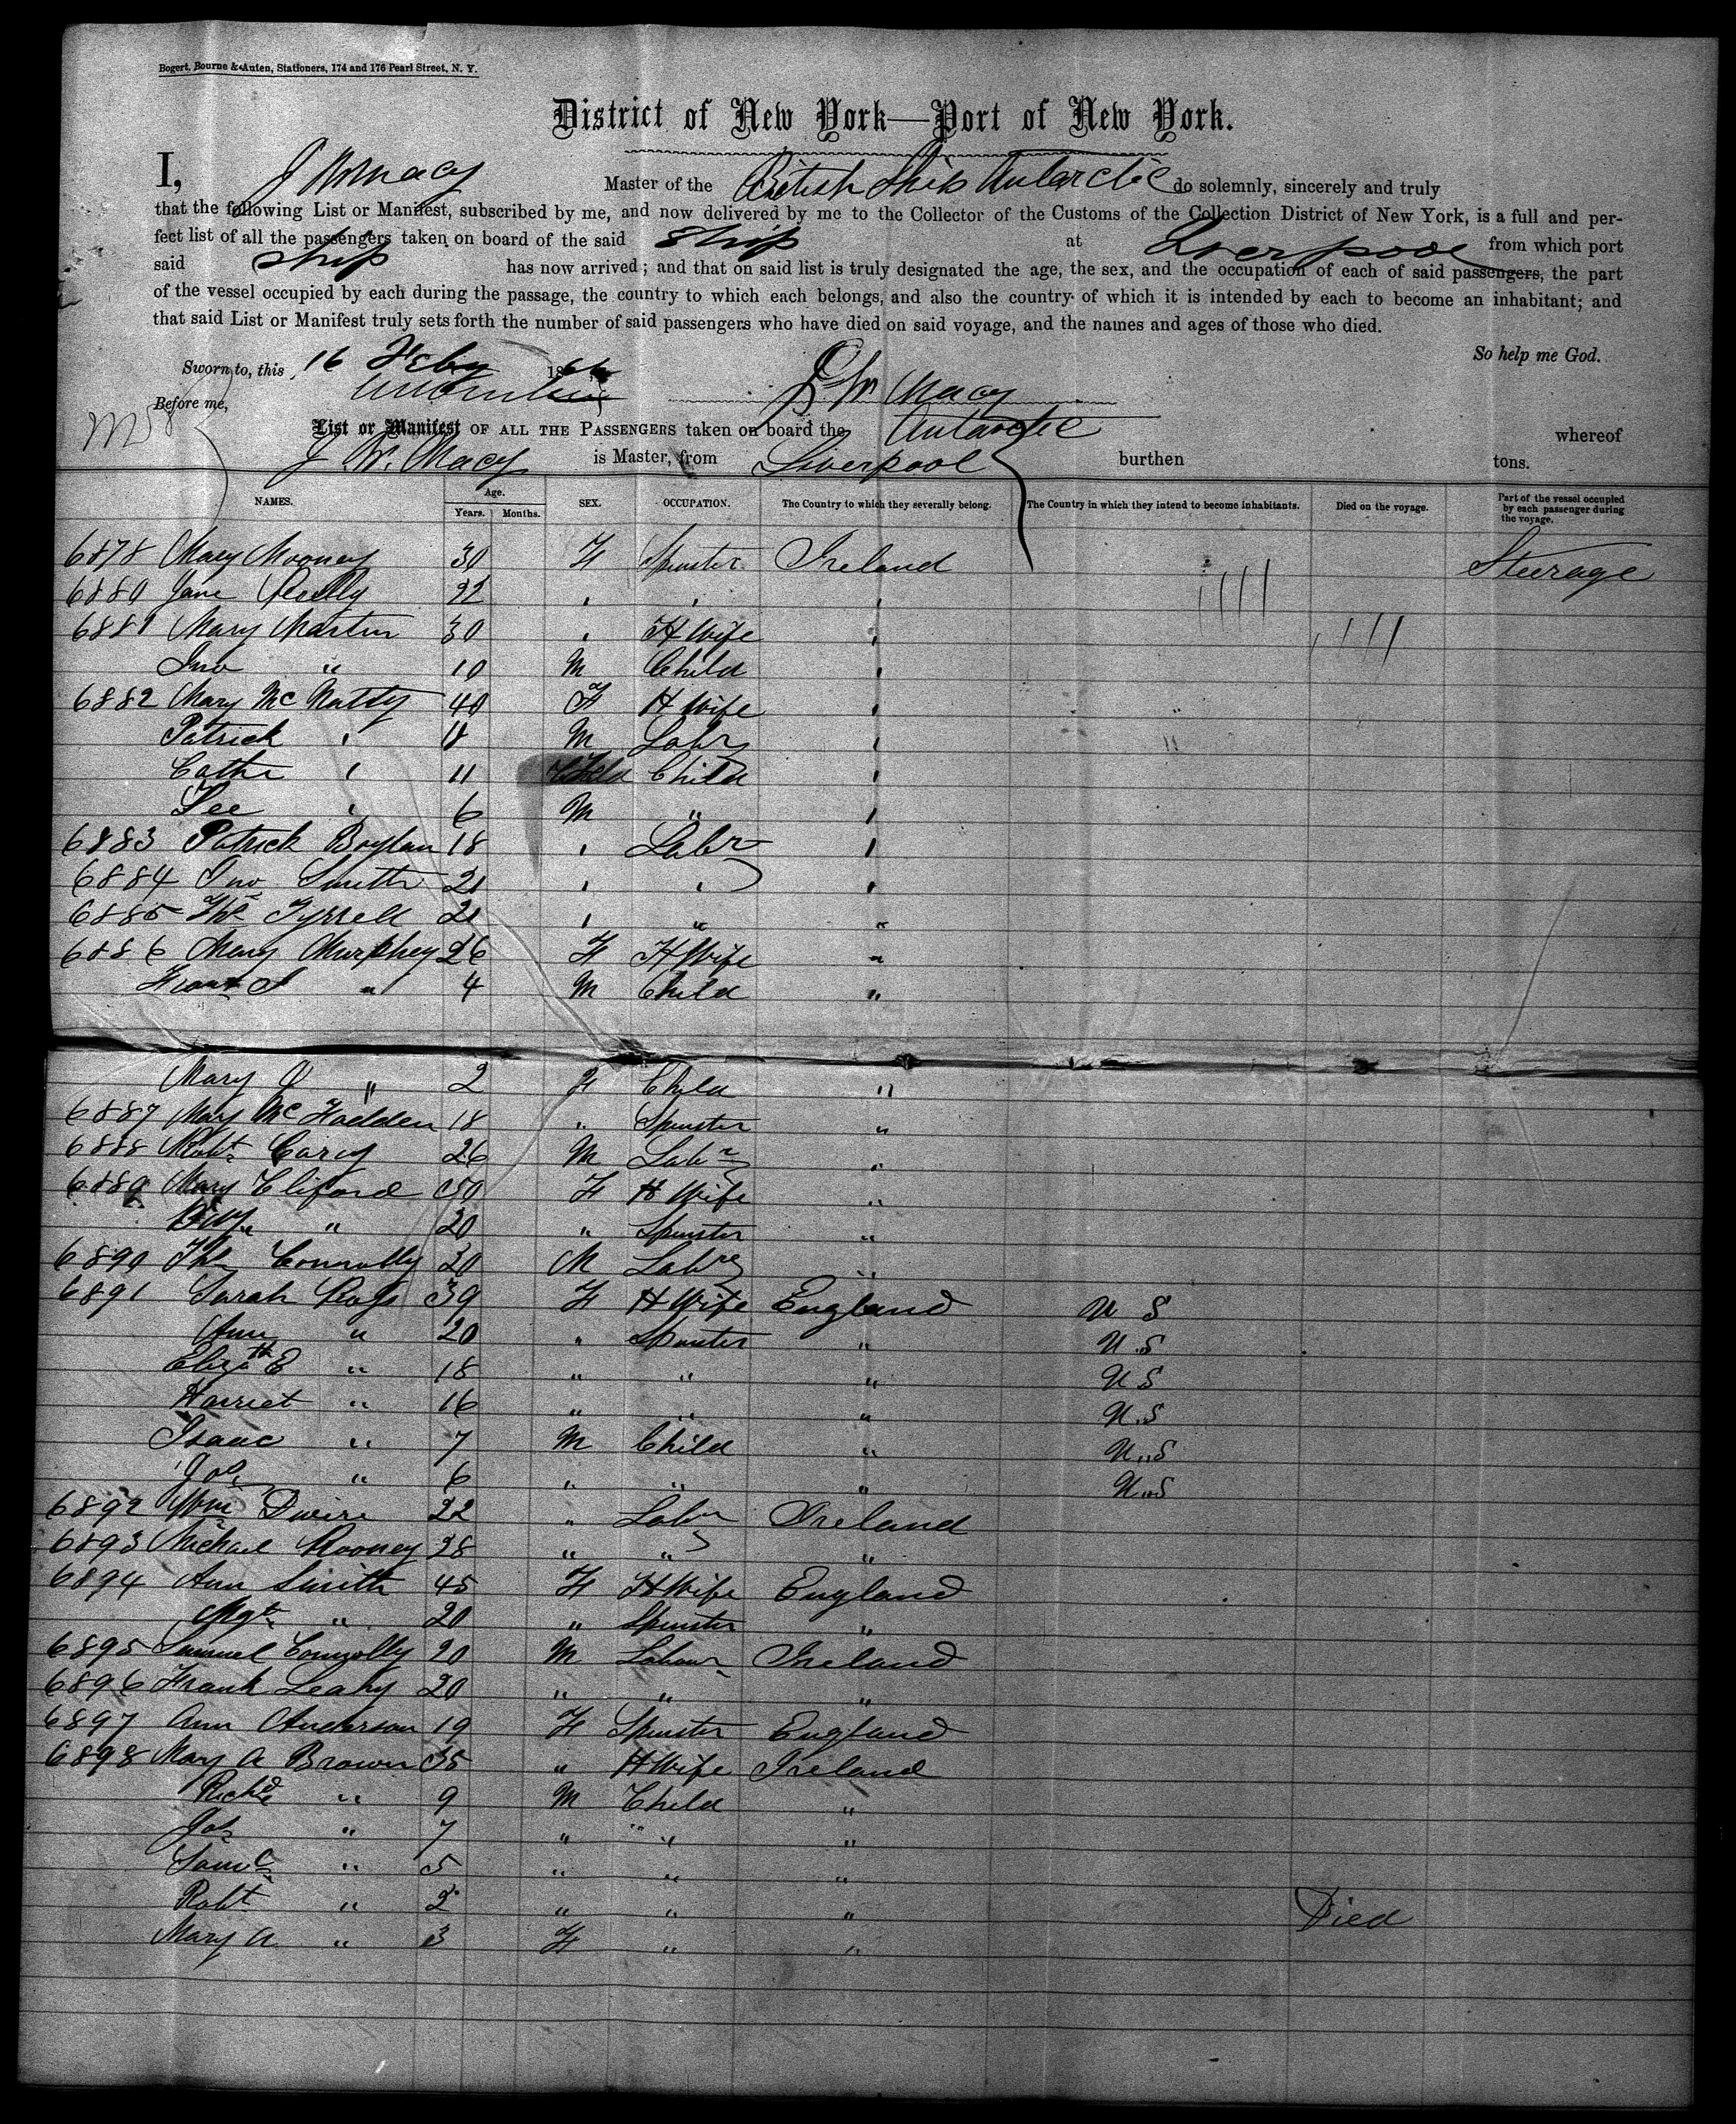 Bogert, Bourne & Auten, Stationers, 174 and 176 Pearl Street, N. Y.
District of New York—Port of New York.
I, J W Macy Master of the British Ship Antarctic do solemnly, sincerely and truly
that the following List or Manifest, subscribed by me, and now delivered by me to the Collector of the Customs of the Collection District of New York, is a full and per-
fect list of all the passengers taken on board of the said Ship at Liverpool from which port
said Ship has now arrived; and that on said list is truly designated the age, the sex, and the occupation of each of said passengers, the part
of the vessel occupied by each during the passage, the country to which each belongs, and also the country of which it is intended by each to become an inhabitant; and
that said List or Manifest truly sets forth the number of said passengers who have died on said voyage, and the names and ages of those who died.
So help me God.
Sworn to, this 16 Feby 1866
Before me, J W Macy
List or Manifest OF ALL THE PASSENGERS taken on board the Antarctic whereof
J W. Macy is Master, from Liverpool burthen tons.
NAMES. Age. Years. Months. SEX. OCCUPATION. The Country to which they severally belong. The Country in which they intend to become inhabitants. Died on the voyage. Part of the vessel occupied by each passenger during the voyage.
6878 Mary Mooney 30 F Spinster Ireland Steerage
6880 Jane Reilly 22 " " "
6881 Mary Martin 30 " H Wife "
Jno " 10 M Child "
6882 Mary Mc Natty 40 F H Wife "
Patrick " 18 M Labr "
Cathe " 11 Child "
" 6 M " "
6883 Patrick Boylan 18 " Labr "
6884 Jno Smith 21 " " "
6885 Ths Tyrrell 21 " " "
6886 Mary Murphey 26 F H Wife "
" 4 M Child "
Mary J " 2 F Child "
6887 Mary Mc Fadden 18 " Spinster "
6888 Robt Carey 26 M Labr "
6889 Mary Cliford 50 F H Wife "
" 20 " Spinster "
6890 Ths Connolly 30 M Labr "
6891 Sarah 39 F H Wife England U S
Ann " 20 " Spinster " U.S
Elizath E " 18 " " " U S
Harriet " 16 " " " U.S
Isaac " 7 M Child " U.S
Jos " 6 " " " U.S
6892 Wm Dwire 22 " Labr Ireland
6893 Michael Rooney 28 " " "
6894 Ann Smith 45 F H Wife England
Mgt " 20 " Spinster "
6895 Samuel Connolly 20 M Labour Ireland
6896 Frank Leahy 20 " " "
6897 Ann Anderson 19 F Spinster England
6898 Mary A Brown 35 " H Wife Ireland
Richd " 9 M Child "
Jos " 7 " " "
Saml " 5 " " "
Robt " 2 " " " Died
Mary A " 3 F " "